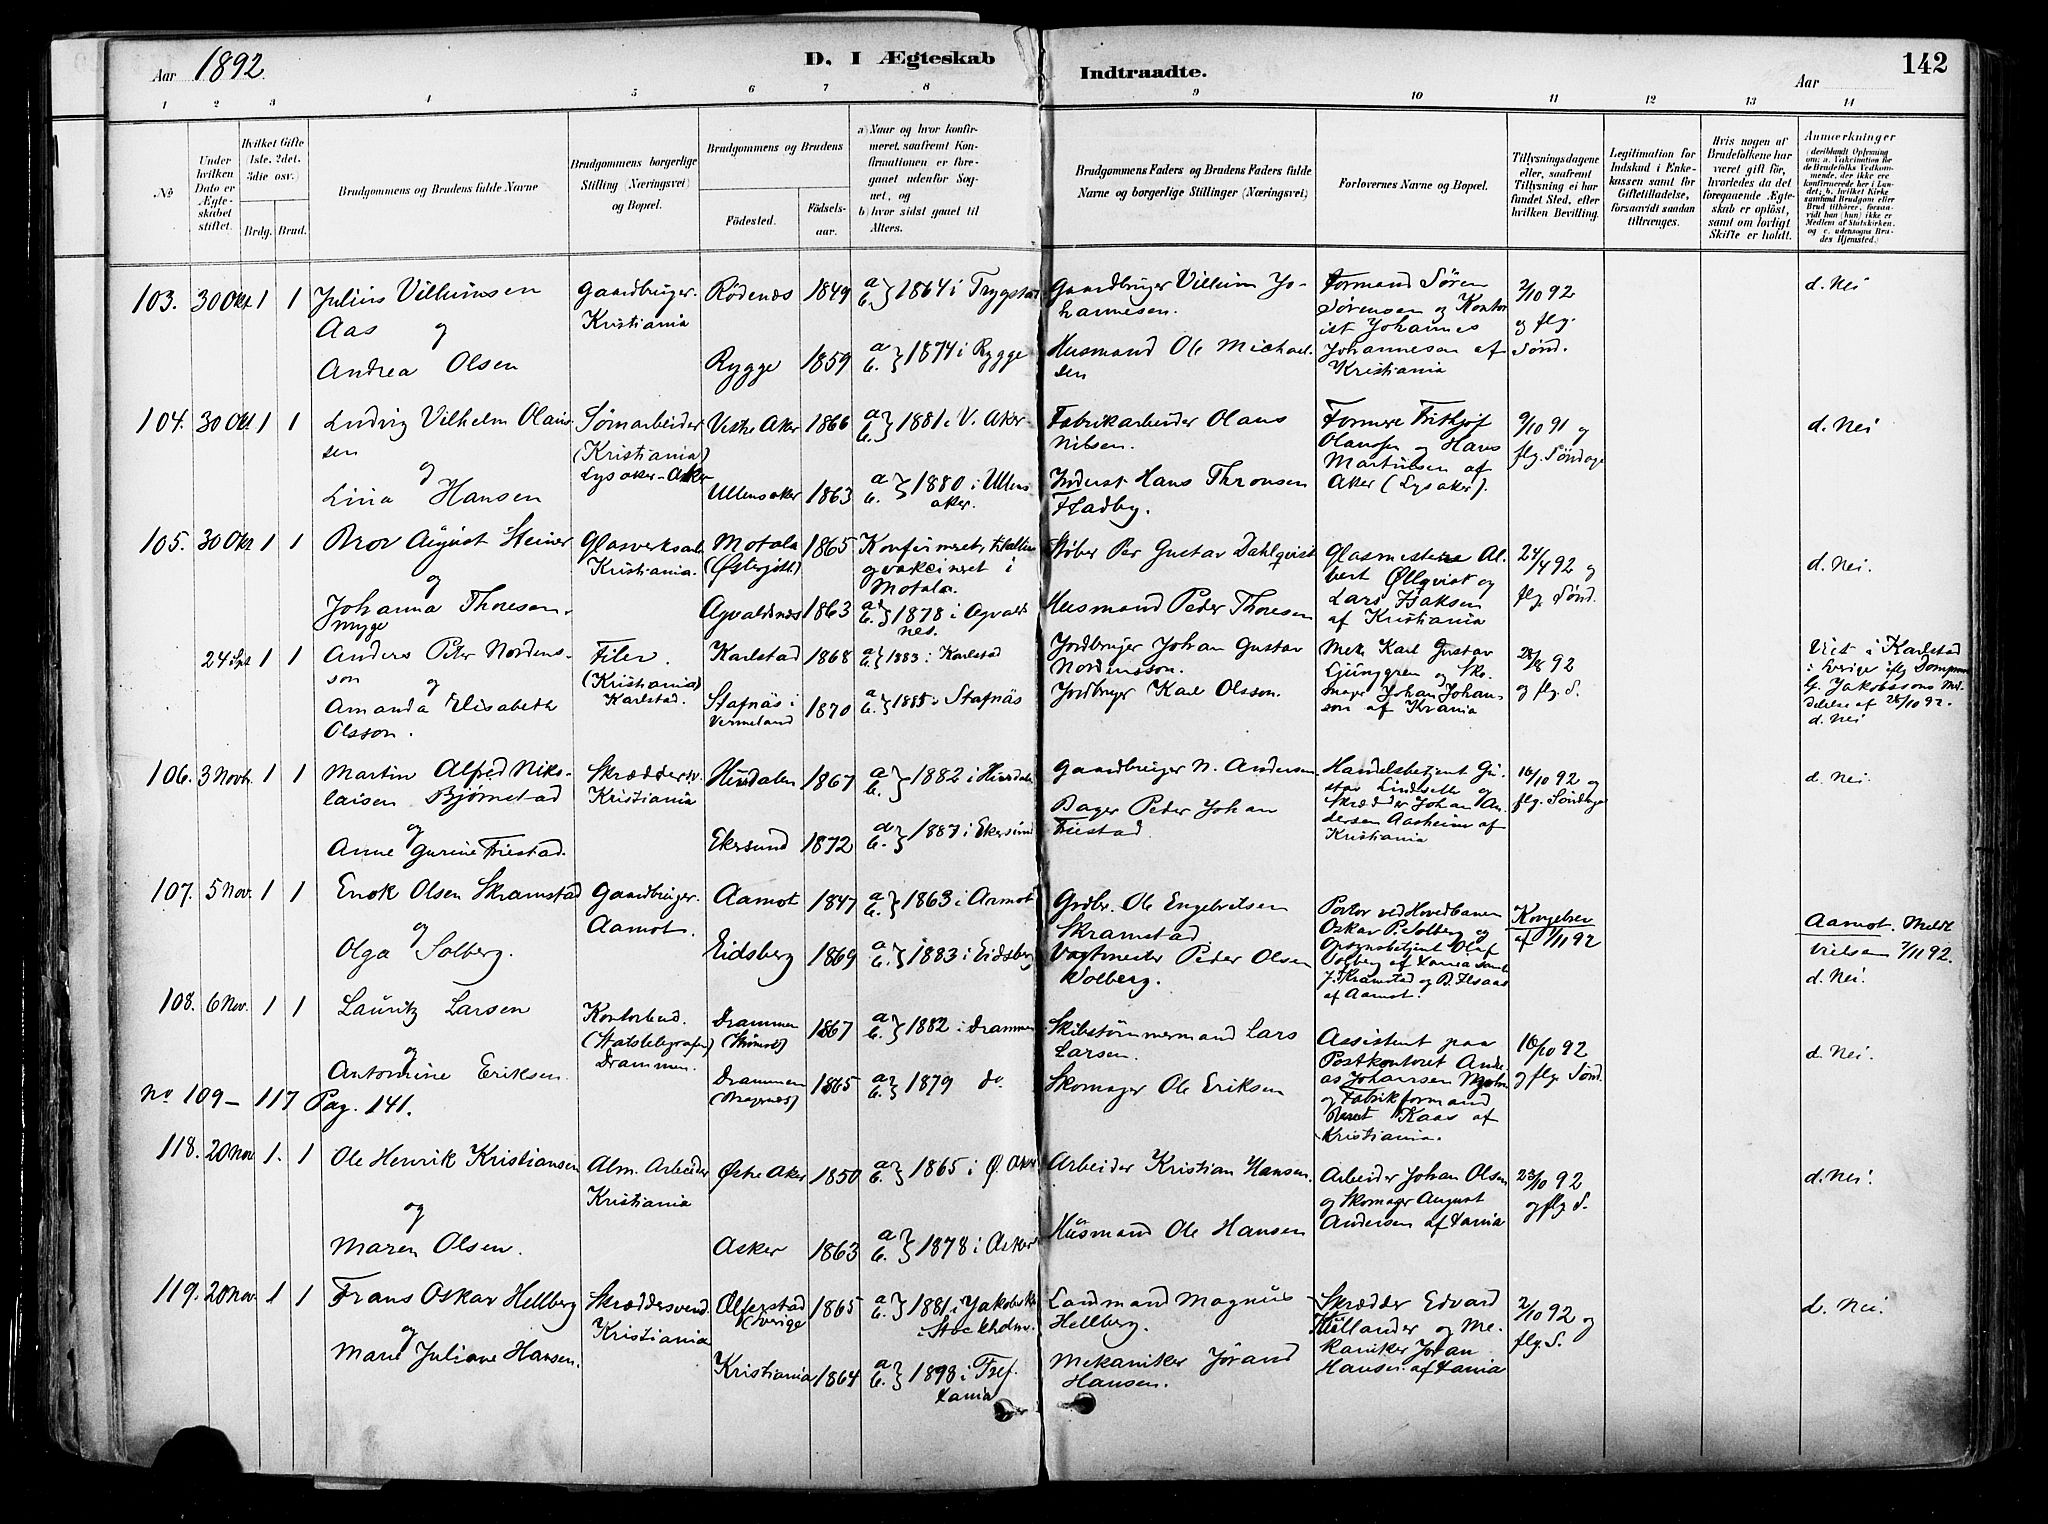 Aar 1892.
D. I Ægteskab
Indtraadte.
Aar
142
1 2 3 4 5 6 7 8 9 10 11 12 13 14
No
Under hvilken Dato er Ægteskabet stiftet.
Hvilket Gifte (1ste, 2det, 3die osv.)
Brdg. Brud.
Brudgommens og Brudens fulde Navne
Brudgommens borgerlige Stilling (Næringsvei) og Bopæl.
Brudgommens og Brudens
Fødested.
Fødselsaar.
a) Naar og hvor konfirmeret, saafremt Konfirmationen er foregaaet udenfor Sognet, og
b) hvor sidst gaaet til Alters.
Brudgommens Faders og Brudens Faders fulde Navne og borgerlige Stillinger (Næringsvei)
Forlovernes Navne og Bopæl.
Tillysningsdagene eller, saafremt Tillysning ei har fundet Sted, efter hvilken Bevilling.
Legitimation for Indskud i Enkekassen samt for Giftetilladelse, forsaavidt saadan tiltrænges.
Hvis nogen af Brudefolkene har været gift før, hvorledes da det foregaaende Ægteskab er opløst, samt om lovligt Skifte er holdt.
Anmærkninger (deriblandt Oplysning om: a. Vakcination for de Brudefolks Vedkommende, der ikke ere konfirmerede her i Landet; b. hvilket Kirkesamfund Brudgom eller Brud tilhører, forsaavidt han (hun) ikke er Medlem af Statskirken, og c. udensogns Brudes Hjemsted.)
103. 30 Okt 1 1 Julius Villumsen Aas og Gaardbruger. Kristiania Rødenæs 1849 a b. } 1864 i Trygstad Gaardbruger Villum Johannesen. Formand Søren Sørensen og Kontorist Johannes Johannesen af Kristiania 2/10 92 og flg. Sønd. d. Nei
Andrea Olsen Rygge 1859 a b. } 1874 i Rygge Husmand Ole Michaelsen
104. 30 Okt 1 1 Ludvig Vilhelm Olaussen og (Kristiania) Lysaker - Aker Vestre Aker 1866 a b. } 1881 i V. Aker Fabrikarbeider Olaus Nilsen. Formere Frithjof Olaussen og Hans Martinsen af Aker (Lysaker). 9/10 91 og flg. Søndage d. Nei
Lina Hansen Ullensaker 1863 a b. } 1880 i Ullensaker. Inderst Hans Thronsen Fladby.
105. 30 Okt 1 1 Bror August Steiner og Glasverksarb. Kristiania. Motala (Østergötl.) 1865 Konfirmeret, og vakcineret i Motala Støber Per Gustav Dahlqvist Glasmester Albert Øllqvist og Lars Isaksen af Kristiania 24/4 92 og flg. Sønd. d. Nei.
Johanna Thoresen Mygge Agvaldsnæs 1863 a b. } 1878 i Agvaldsnes. Husmand Peder Thoresen
24 Spt 1 1 Anders Peter Nordensson og Filer. (Kristiania) Karlstad. Karlstad 1868 a b. } 1883 i Karlstad Jordbruger Johan Gustav Mek. Karl Gustav Ljunggren og Skomager Johan Johansson af Krania 28/8 92 og flg. S. Viet i Karlstad i Sverige iflg Jakobssons Meddelelse af 26/10 92. d. Nei
Amanda Elisabeth Olsson. Stafnäs i Vermeland 1870 a b. } 1885 i Stafnäs Jordbruger Karl Olsson.
106. 3 Novbr. 1 1 Martin Alfred Nikolaisen Bjørnstad og Skræddersv. Kristiania Hurdalen 1867 a b. } 1882 i Hurdalen Gaardbruger N. Andersen Handelsbetjent Gustav Lindseth og Skrædder Johan Andersen Aasheim af Kristiania 16/10 92 og flg. Søndage d. Nei.
Anne Gurine Friestad. Ekersund 1872 a b. } 1887 i Ekersund Bager Peder Johan Friestad.
107. 5 Nov. 1 1 Enok Olsen Skramstad og Gaardbruger. Aamot. Aamot 1847 a b. } 1863 i Aamot Grdbr. Ole Engebretsen Skramstad Portør ved Hovedbanen Oskar P. Solberg og Opsynsbetjent Olaf Solberg af Kania samt J. Skramstad og af Aamot. Kongebrev af 1/11 92 Aamot. Meldt Vielsen 7/11 92. d. Nei.
Olga Solberg. Eidsberg 1869 a b. } 1883 i Eidsberg Vagtmester Peder Olsen Solberg.
108. 6 Nov. 1 1 Lauritz Larsen og Kontorbud. (Statstelegrafen) Drammen. Drammen (Strømsø) 1867 a b. } 1882 i Drammen Skibstømmermand Lars Larsen. Assistent paa Postkontoret Andreas Johansen og Fabrikformand Kaas af Kristiania. 16/10 92 og flg. Sønd. d. Nei.
Antonine Eriksen. Drammen (Bragernæs) 1865 a b. } 1879 do. Skomager Ole Eriksen
No 109 - 117 Pag. 141.
118. 20 Nov 1. 1 Ole Henrik Kristiansen og Alm. Arbeider Kristiania Østre Aker 1850 a b. } 1865 i Ø. Aker Arbeider Kristian Hansen. Arbeider Johan Olsen og Skomager August Andersen af Kania 23/10 92 og flg S. d. Nei.
Maren Olsen. Asker 1863 a b. } 1878 i Asker Husmand Ole Hansen
119. 20 Nov. 1 1 Frans Oskar Hellberg og Skræddersvend. Kristiania (Sverige 1865 a b. } 1881 i Jakobs K. i Stockholm. Landmand Magnus Hellberg. Skrædder Edvard og Mekaniker Jøran Hansen af Kania 2/10 92 og flg. S. d. Nei.
Marie Juliane Hansen. Kristiania 1864 a b. } i Tref. Kania Mekaniker Jørand Hansen.